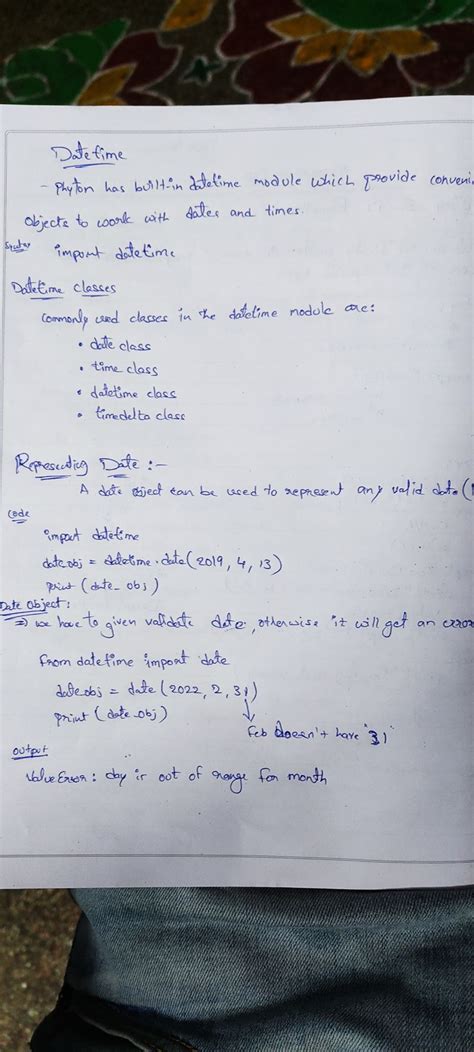 Datetime
- Phyton has built-in datetime module which provide conveni
objects to work with dates and times.
import datetime
Datetime classes
Commonly used classes in the datetime module are:
• date class
• time class
• datetime class
• timedelta class
Representing Date :-
A date object can be used to represent any valid date (
Code
import datetime
date_obj = datetime.date(2019, 4, 13)
print (date_obj)
Date Object:
⇒ we have to given validate date, otherwise it will get an error
from datetime import date
date_obj = date (2022, 2, 31)
print (date_obj)
Feb doesn't have "31"
output
ValueError: day is out of range for month